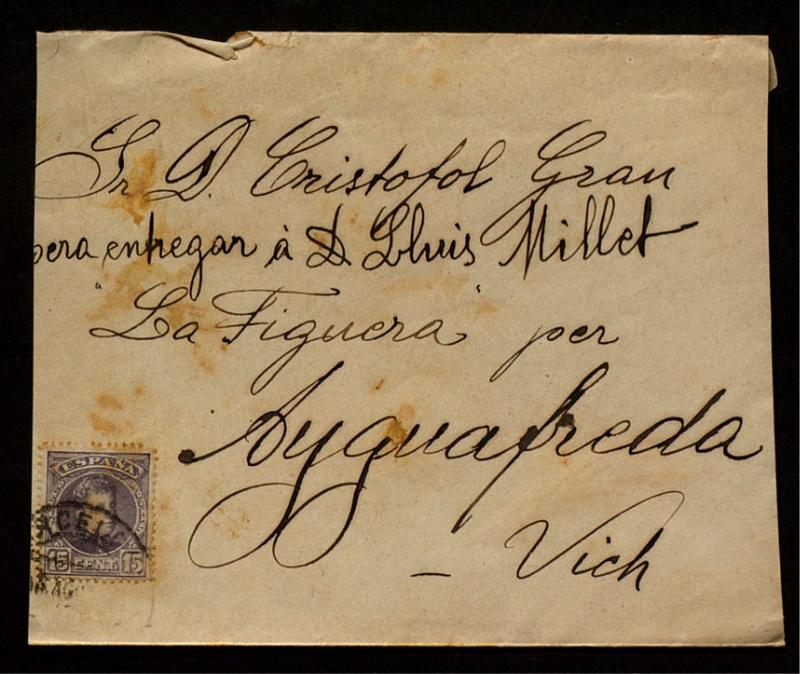 Sr D. Cristofol Grau
pera entregar à D. Lluis Millet
"La Figuera" per
Ayguafreda
- Vich
ESPAÑA
15 CENT. 15